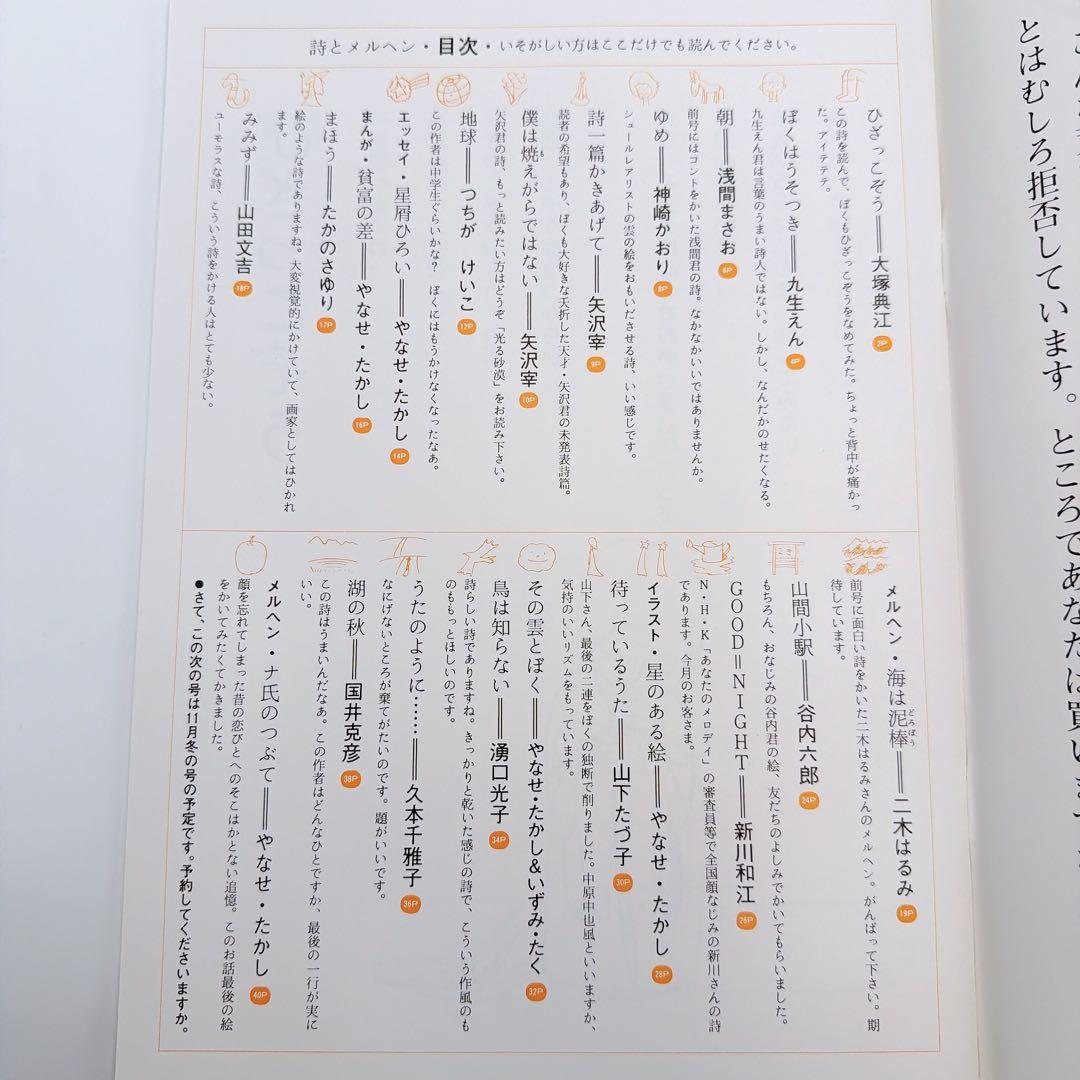 とはむしろ拒否しています。ところであなたは買いま
詩とメルヘン・目次・いそがしい方はここだけでも読んでください。
ひざっこぞう──大塚典江 2P
この詩を読んで、ぼくもひざっこぞうをなめてみた。ちょっと背中が痛かっ
た。アイテテテ。
ぼくはうそつき──九生えん 4P
九生えん君は言葉のうまい詩人ではない。しかし、なんだかのせたくなる。
朝──浅間まさお 6P
前号にはコントをかいた浅間君の詩。なかなかいいではありませんか。
ゆめ──神崎かおり 8P
シュールレアリストの雲の絵をおもいださせる詩、いい感じです。
詩一篇かきあげて──矢沢宰 9P
読者の希望もあり、ぼくも大好きな夭折した天才・矢沢君の未発表詩篇。
僕は焼えがらではない──矢沢宰 10P
も
矢沢君の詩、もっと読みたい方はどうぞ「光る砂漠」をお読み下さい。
地球──つちが けいこ 12P
この作者は中学生ぐらいかな? ぼくにはもうかけなくなったなあ。
エッセイ・星屑ひろい──やなせ・たかし 14P
まんが・貧富の差──やなせ・たかし 16P
まほう──たかのさゆり 17P
絵のような詩でありますね。大変視覚的にかけていて、画家としてはひかれ
ます。
みみず──山田文吉 18P
ユーモラスな詩、こういう詩をかける人はとても少ない。
メルヘン・海は泥棒──二木はるみ 19P
どろぼう
前号に面白い詩をかいた二木はるみさんのメルヘン。がんばって下さい。期
待しています。
山間小駅──谷内六郎 24P
もちろん、おなじみの谷内君の絵、友だちのよしみでかいてもらいました。
GOOD＝NIGHT──新川和江 26P
N・H・K「あなたのメロディ」の審査員等で全国顔なじみの新川さんの詩
であります。今月のお客さま。
イラスト・星のある絵──やなせ・たかし 28P
待っているうた──山下たづ子 30P
山下さん、最後の二連をぼくの独断で削りました。中原中也風といいますか、
気持のいいリズムをもっています。
その雲とぼく──やなせ・たかし&いずみ・たく 32P
鳥は知らない──湧口光子 34P
詩らしい詩でありますね。きっかりと乾いた感じの詩で、こういう作風のも
のももっとほしいのです。
うたのように……──久本千雅子 36P
なにげないところが棄てがたいのです。題がいいです。
湖の秋──国井克彦 38P
この詩はうまいんだなあ。この作者はどんなひとですか、最後の一行が実に
いい。
メルヘン・ナ氏のつぶて──やなせ・たかし 40P
顔を忘れてしまった昔の恋びとへのそこはかとない追憶。このお話最後の絵
をかいてみたくてかきました。
●さて、この次の号は11月冬の号の予定です。予約してくださいますか。